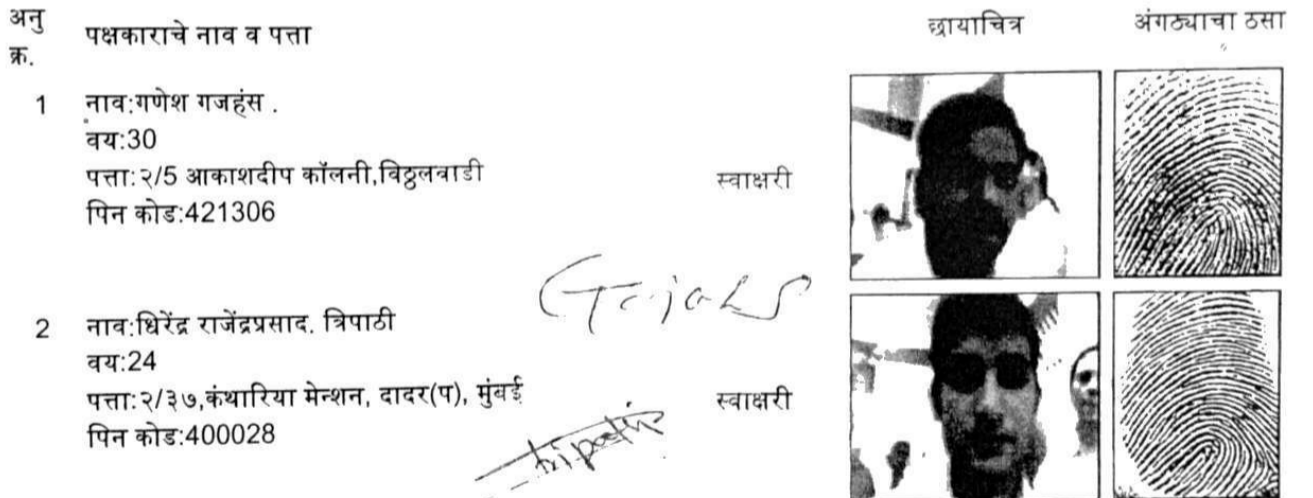 अनु क्र. पक्षकाराचे नाव व पत्ता छायाचित्र अंगठ्याचा ठसा
1 नाव:गणेश गजहंस .
वय:30
पत्ता:२/5 आकाशदीप कॉलनी,विठ्ठलवाडी स्वाक्षरी
पिन कोड:421306
2 नाव:धिरेंद्र राजेंद्रप्रसाद. त्रिपाठी
वय:24
पत्ता:२/३७,कंथारिया मेन्शन, दादर(प), मुंबई स्वाक्षरी
पिन कोड:400028